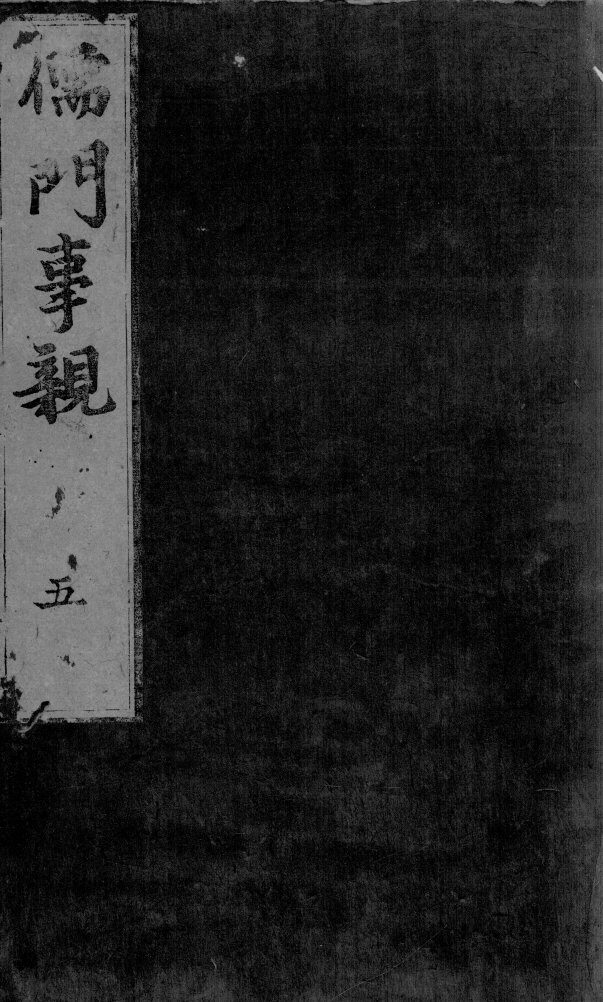 儒門事親 五